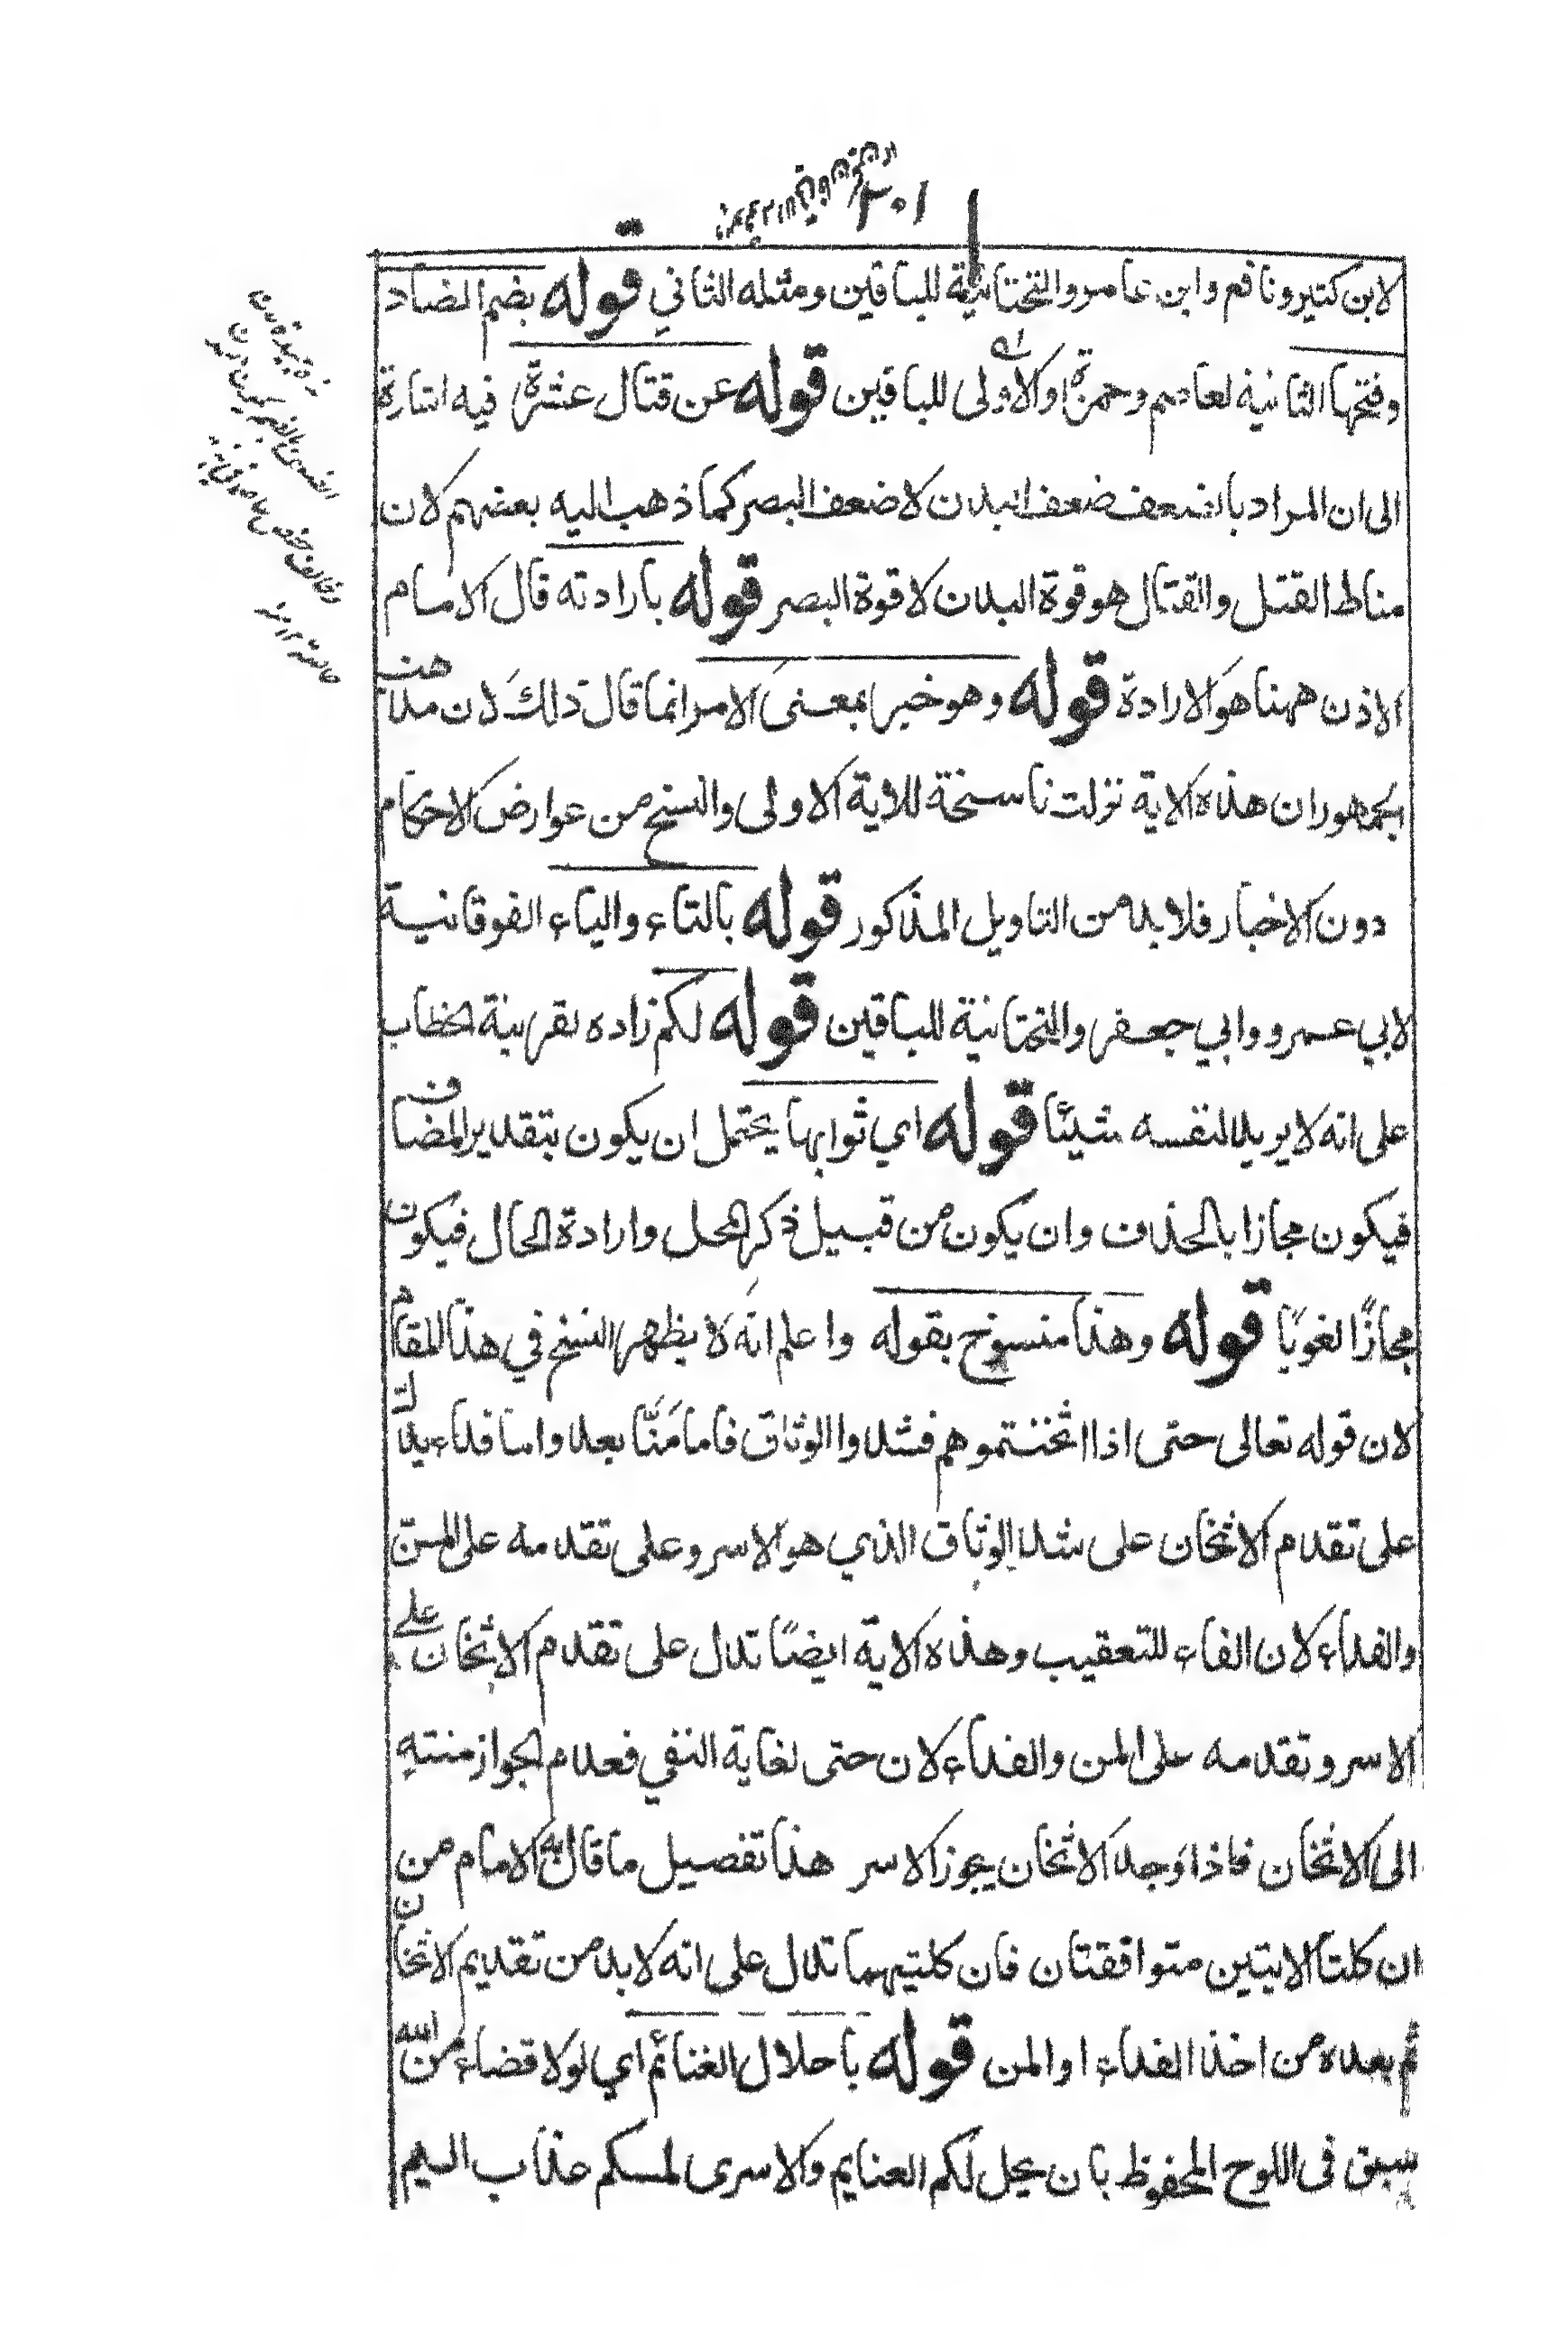 ٣٠١
لابن كثير ونافع وابن عامر والتحتانية للباقين ومثله الثاني قوله بضم الضاد
وفتحها الثانية لعاصم وحمزة والاولى للباقين قوله عن قتال عشرة فيه اشارة
الى ان المراد بالضعف ضعف البدن لا ضعف البصر كما ذهب اليه بعضهم لان
مناط القتل والقتال هو قوة البدن لا قوة البصر قوله بارادته قال الامام
الاذن ههنا هو الارادة قوله وهو خبر بمعنى الامر انما قال ذلك لان مذهب
الجمهور ان هذه الاية نزلت ناسخة للاية الاولى والنسخ من عوارض الاحكام
دون الاخبار فلا بد من التاويل المذكور قوله بالتاء والياء الفوقانية
لابي عمرو وابي جعفر والتحتانية للباقين قوله لكم زاده بقرينة الخطاب
على انه لا يريد لنفسه شيئا قوله اي ثوابها يحتمل ان يكون بتقدير المضاف
فيكون مجازا بالحذف وان يكون من قبيل ذكر المحل وارادة الحال فيكون
مجازًا لغويًا قوله وهذا منسوخ بقوله واعلم انه لا يظهر النسخ في هذا المقام
لان قوله تعالى حتى اذا اثخنتموهم فشدوا الوثاق فاما مَنًّا بعد واما فداء يدل
على تقدم الاثخان على شد الوثاق الذي هو الاسر وعلى تقدمه على المنّ
والفداء لان الفاء للتعقيب وهذه الاية ايضًا تدل على تقدم الاثخان على
الاسر وتقدمه على المن والفداء لان حتى لغاية النفي فعدم الجواز منتهٍ
الى الاثخان فاذا وجد الاثخان يجوز الاسر هذا تفصيل ما قال به الامام من
ان كلتا الايتين متوافقتان فان كلتيهما تدل على انه لا بد من تقديم الاثخان
ثم بعده من اخذ الفداء او المن قوله باحلال الغنائم اي لولا قضاء من الله
سبق في اللوح المحفوظ بان يحل لكم الغنايم والاسرى لمسكم عذاب اليم